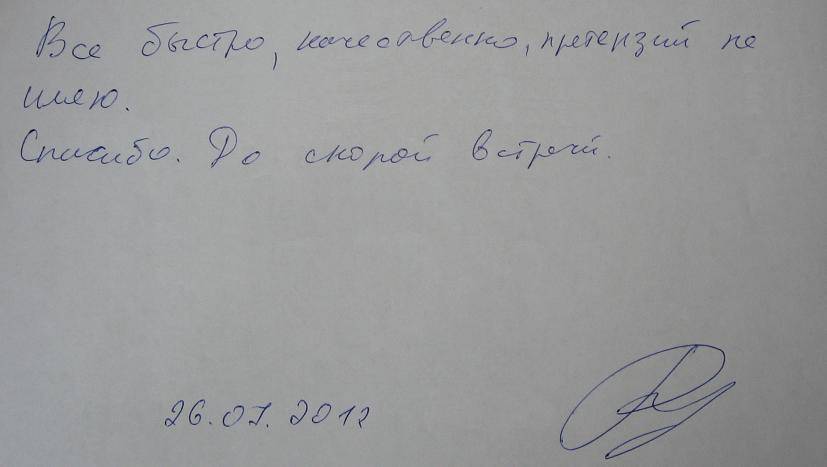 Все быстро, качественно, претензий не
имею.
Спасибо. До скорой встречи.
26.07.2012